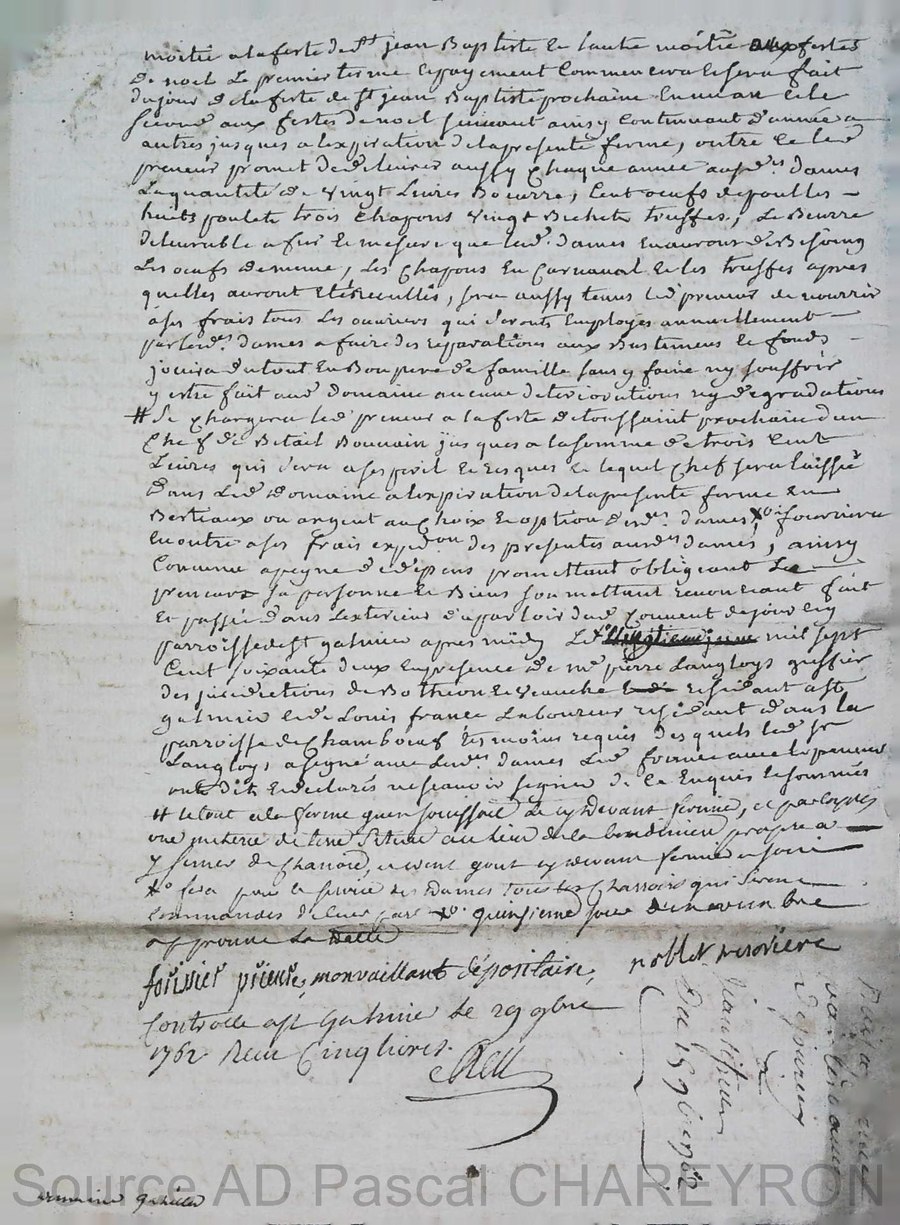 moitié a la feste de st jean Baptiste et lautre moitié aux festes
de noel le premier terme et payement Commencera et sera fait
du jour de la feste de st jean Baptiste prochaine en un an et le
second aux festes de noel suivant ainsy Continuant d'année a
autres jusques a lexpiration de la presente ferme, outre ce led
preneur promet de delivrer aussy chaque année auxd. dames
la quantité de vingt Livres Beurre, Cent oeufs de poulles
huits poulets trois Chapons vingt Bichets truffes, le Beurre
delivrable a fur et mesure que lesd. dames en auront de Besoing
les oeufs de meme, les Chapons En Carnaval et les truffes apres
quelles auront Eté recueillies, sera aussy tenus led preneur de nourrir
a ses frais tous les ouvriers qui seronts Employés annuellement
par lesd. dames a faire des reparations aux Bastimens et fonds
jouira du tout en Bon pere de famille sans y faire ny souffrir
y estre fait aud domaine aucune deteriorations ny degradations
# Se Chargera led preneur a la feste de toussaint prochaine d'un
Chef de Betail Bouvain jusques a la somme de trois Cent
Livres qui sera a ses peril et risques et lequel Chef sera laissé
dans led domaine a lexpiration de la presente ferme en
Bestiaux ou argent au Choix et option desd. dames, xo fournira
en outre a ses frais expedon des presentes auxd dames, ainsy
Convenu a peyne de depens promettant obligeant le
preneur sa personne et Biens soumettant renonceant fait
et passé dans lexterieur du parloir dud Couvent de jourcey
parroisse de st galmier apres midy Le vingtieme juin mil sept
Cent soixante deux en presence de me pierre Langloys greffier
des jurisdictions de Botheon et veauche residant a st
galmier et de Louis france Laboureur residant dans la
parroisse de Chambœuf tesmoins requis desquels led sr
Langloys a signé avec lesd. dames led france avec le preneur
ont dit et declarés ne scavoir signer de ce Enquis et sommés
# le tout a la forme quen jouissoit le cy devant fermier,
une meterée de terre située au lieu de la propre a
y semer du Chanvre, cy devant fermier a joui
xo fera pour le service des Dames tous les Charrois qui seront
commandés de leur part xo. quinsieme jour de novembre
approuve la
forissier prieure, monvaillant dépositaire, noblet
Controlle a st Galmier le 29 9bre
1762 Recu Cinq livres
Du 15 9bre 1762
Source AD Pascal CHAREYRON